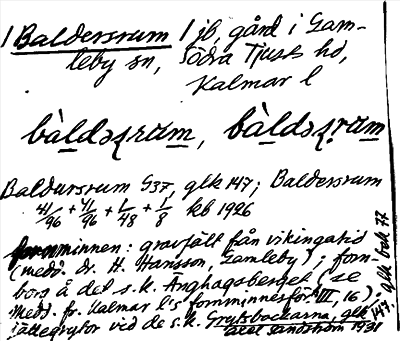 1 Baldersrum 1 jb, gård i Gam-
leby sn, Södra Tjusts hd,
Kalmar l
bàldəʂrʉm, bàldəʂrʉm
Baldersrum G37, glk 147; Baldersrum
41/96 + 41/96 + 1/48 + 1/8 kb 1926
fornminnen: gravfält från vikingatid
(medd. dr. H. Hansson, Gamleby); forn-
borg å det s.k. Änghagsberget, se
Medd. fr. Kalmar l's fornminnesför. VIII, 16);
jättegrytor vid de s.k. Greusbackarna, glk 147,
glk bil 77
Axel Sandström 1931